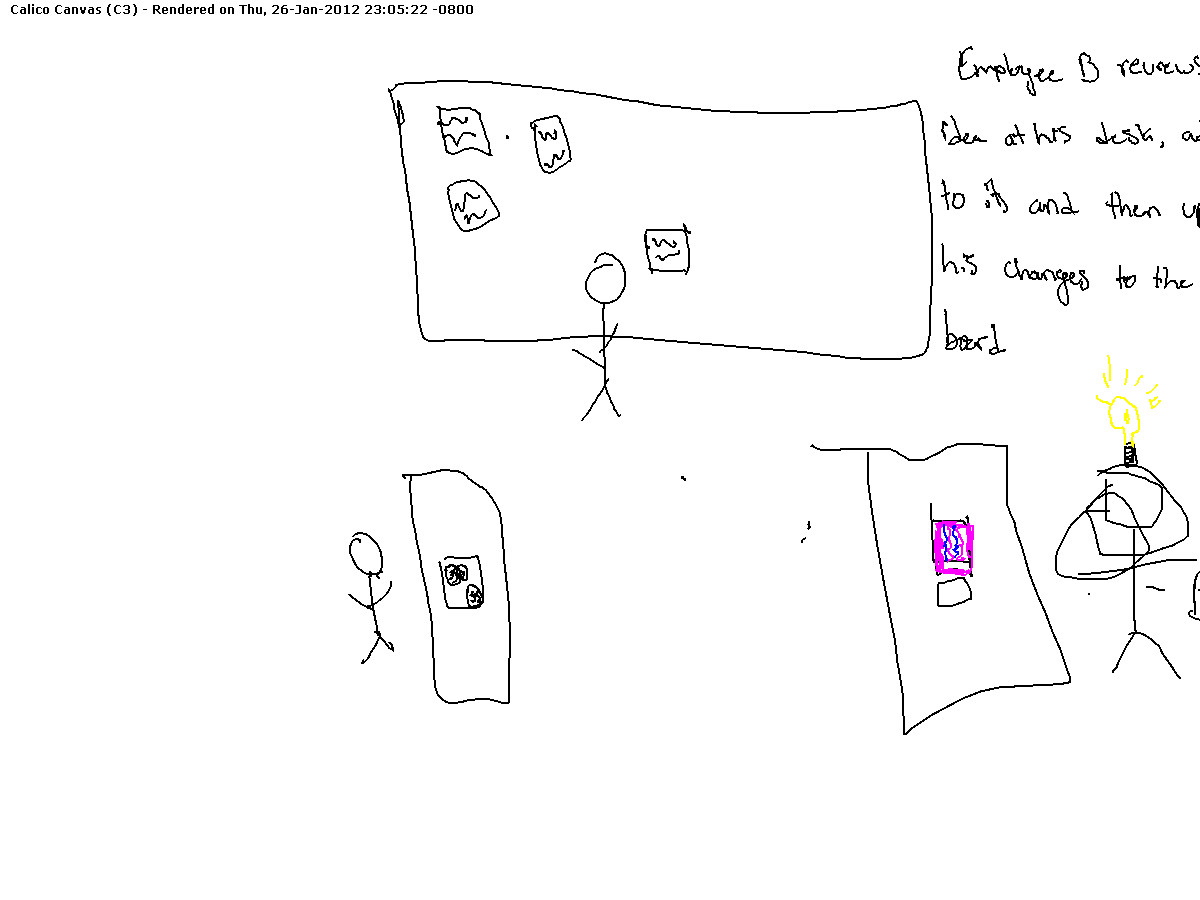 Calico Canvas (C3) - Rendered on Thu, 26-Jan-2012 23:05:22 -0800
Employee B reviews
idea at his desk, ad
to it and then up
his changes to the
board